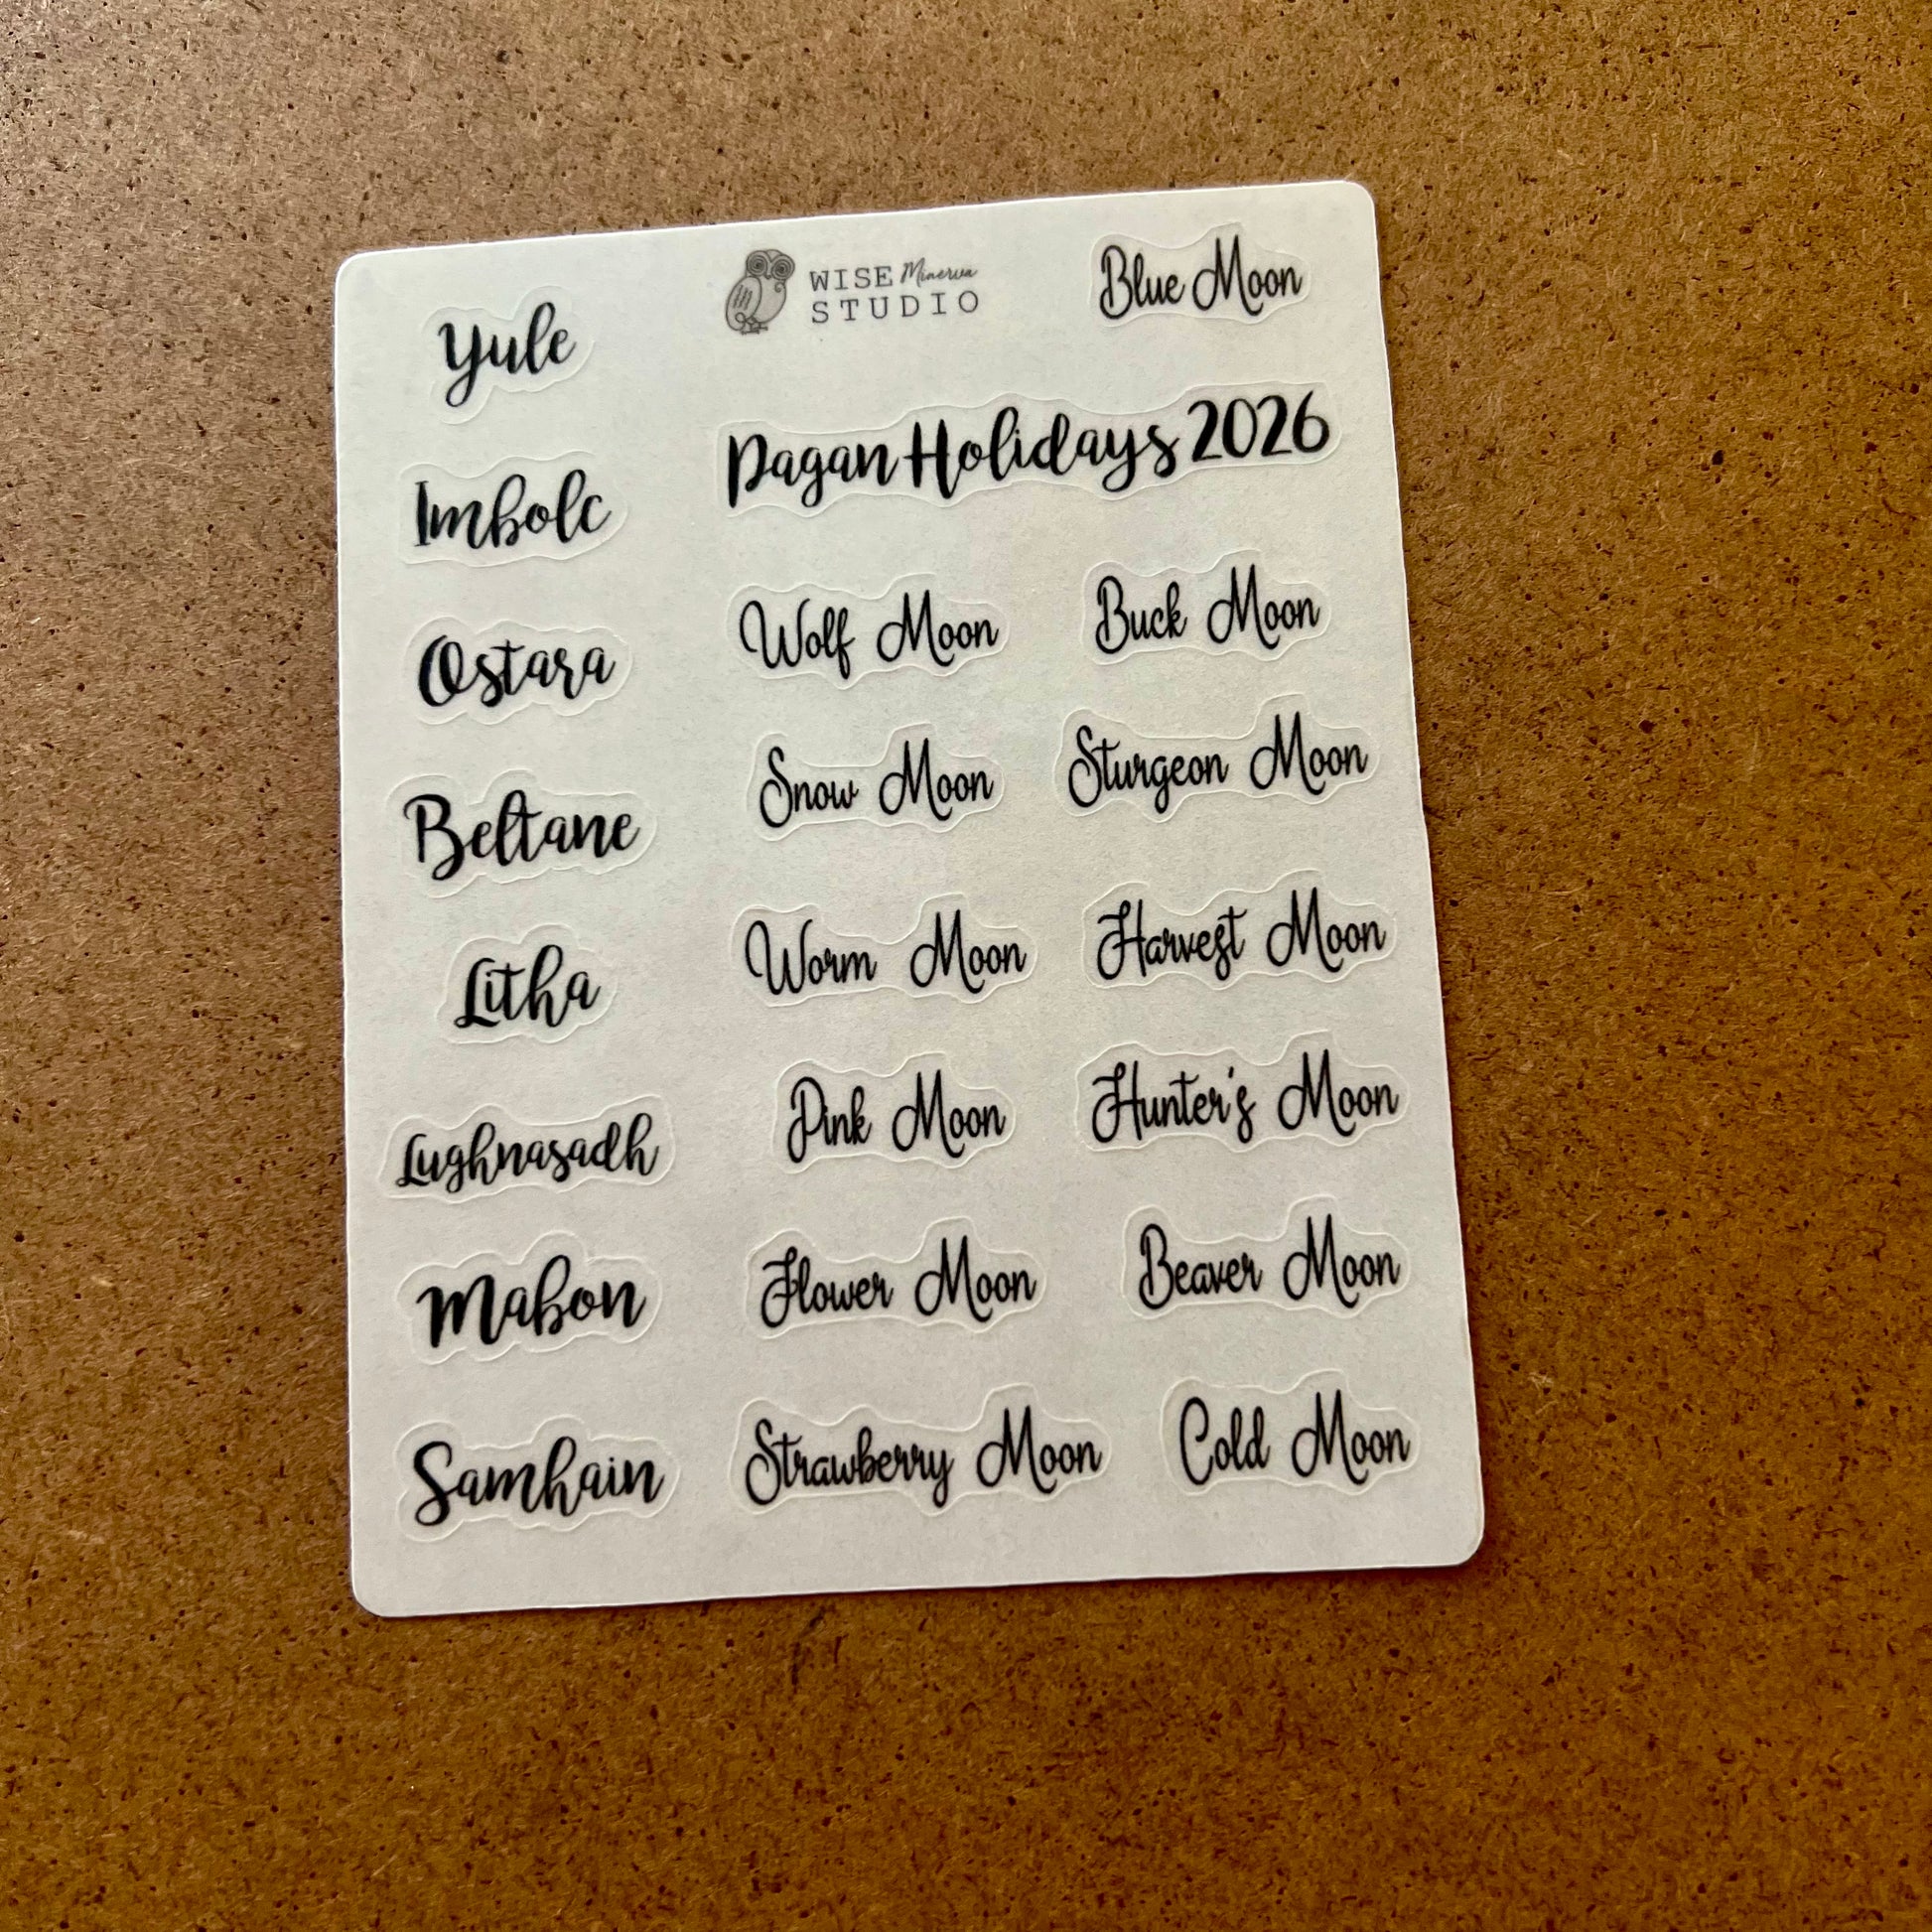 Yule
Imbolc
Ostara
Beltane
Litha
Lughnasadh
Mabon
Samhain
WISE Minerva
STUDIO
Blue Moon
Pagan Holidays 2026
Wolf Moon
Snow Moon
Worm Moon
Pink Moon
Flower Moon
Strawberry Moon
Buck Moon
Sturgeon Moon
Harvest Moon
Hunter's Moon
Beaver Moon
Cold Moon